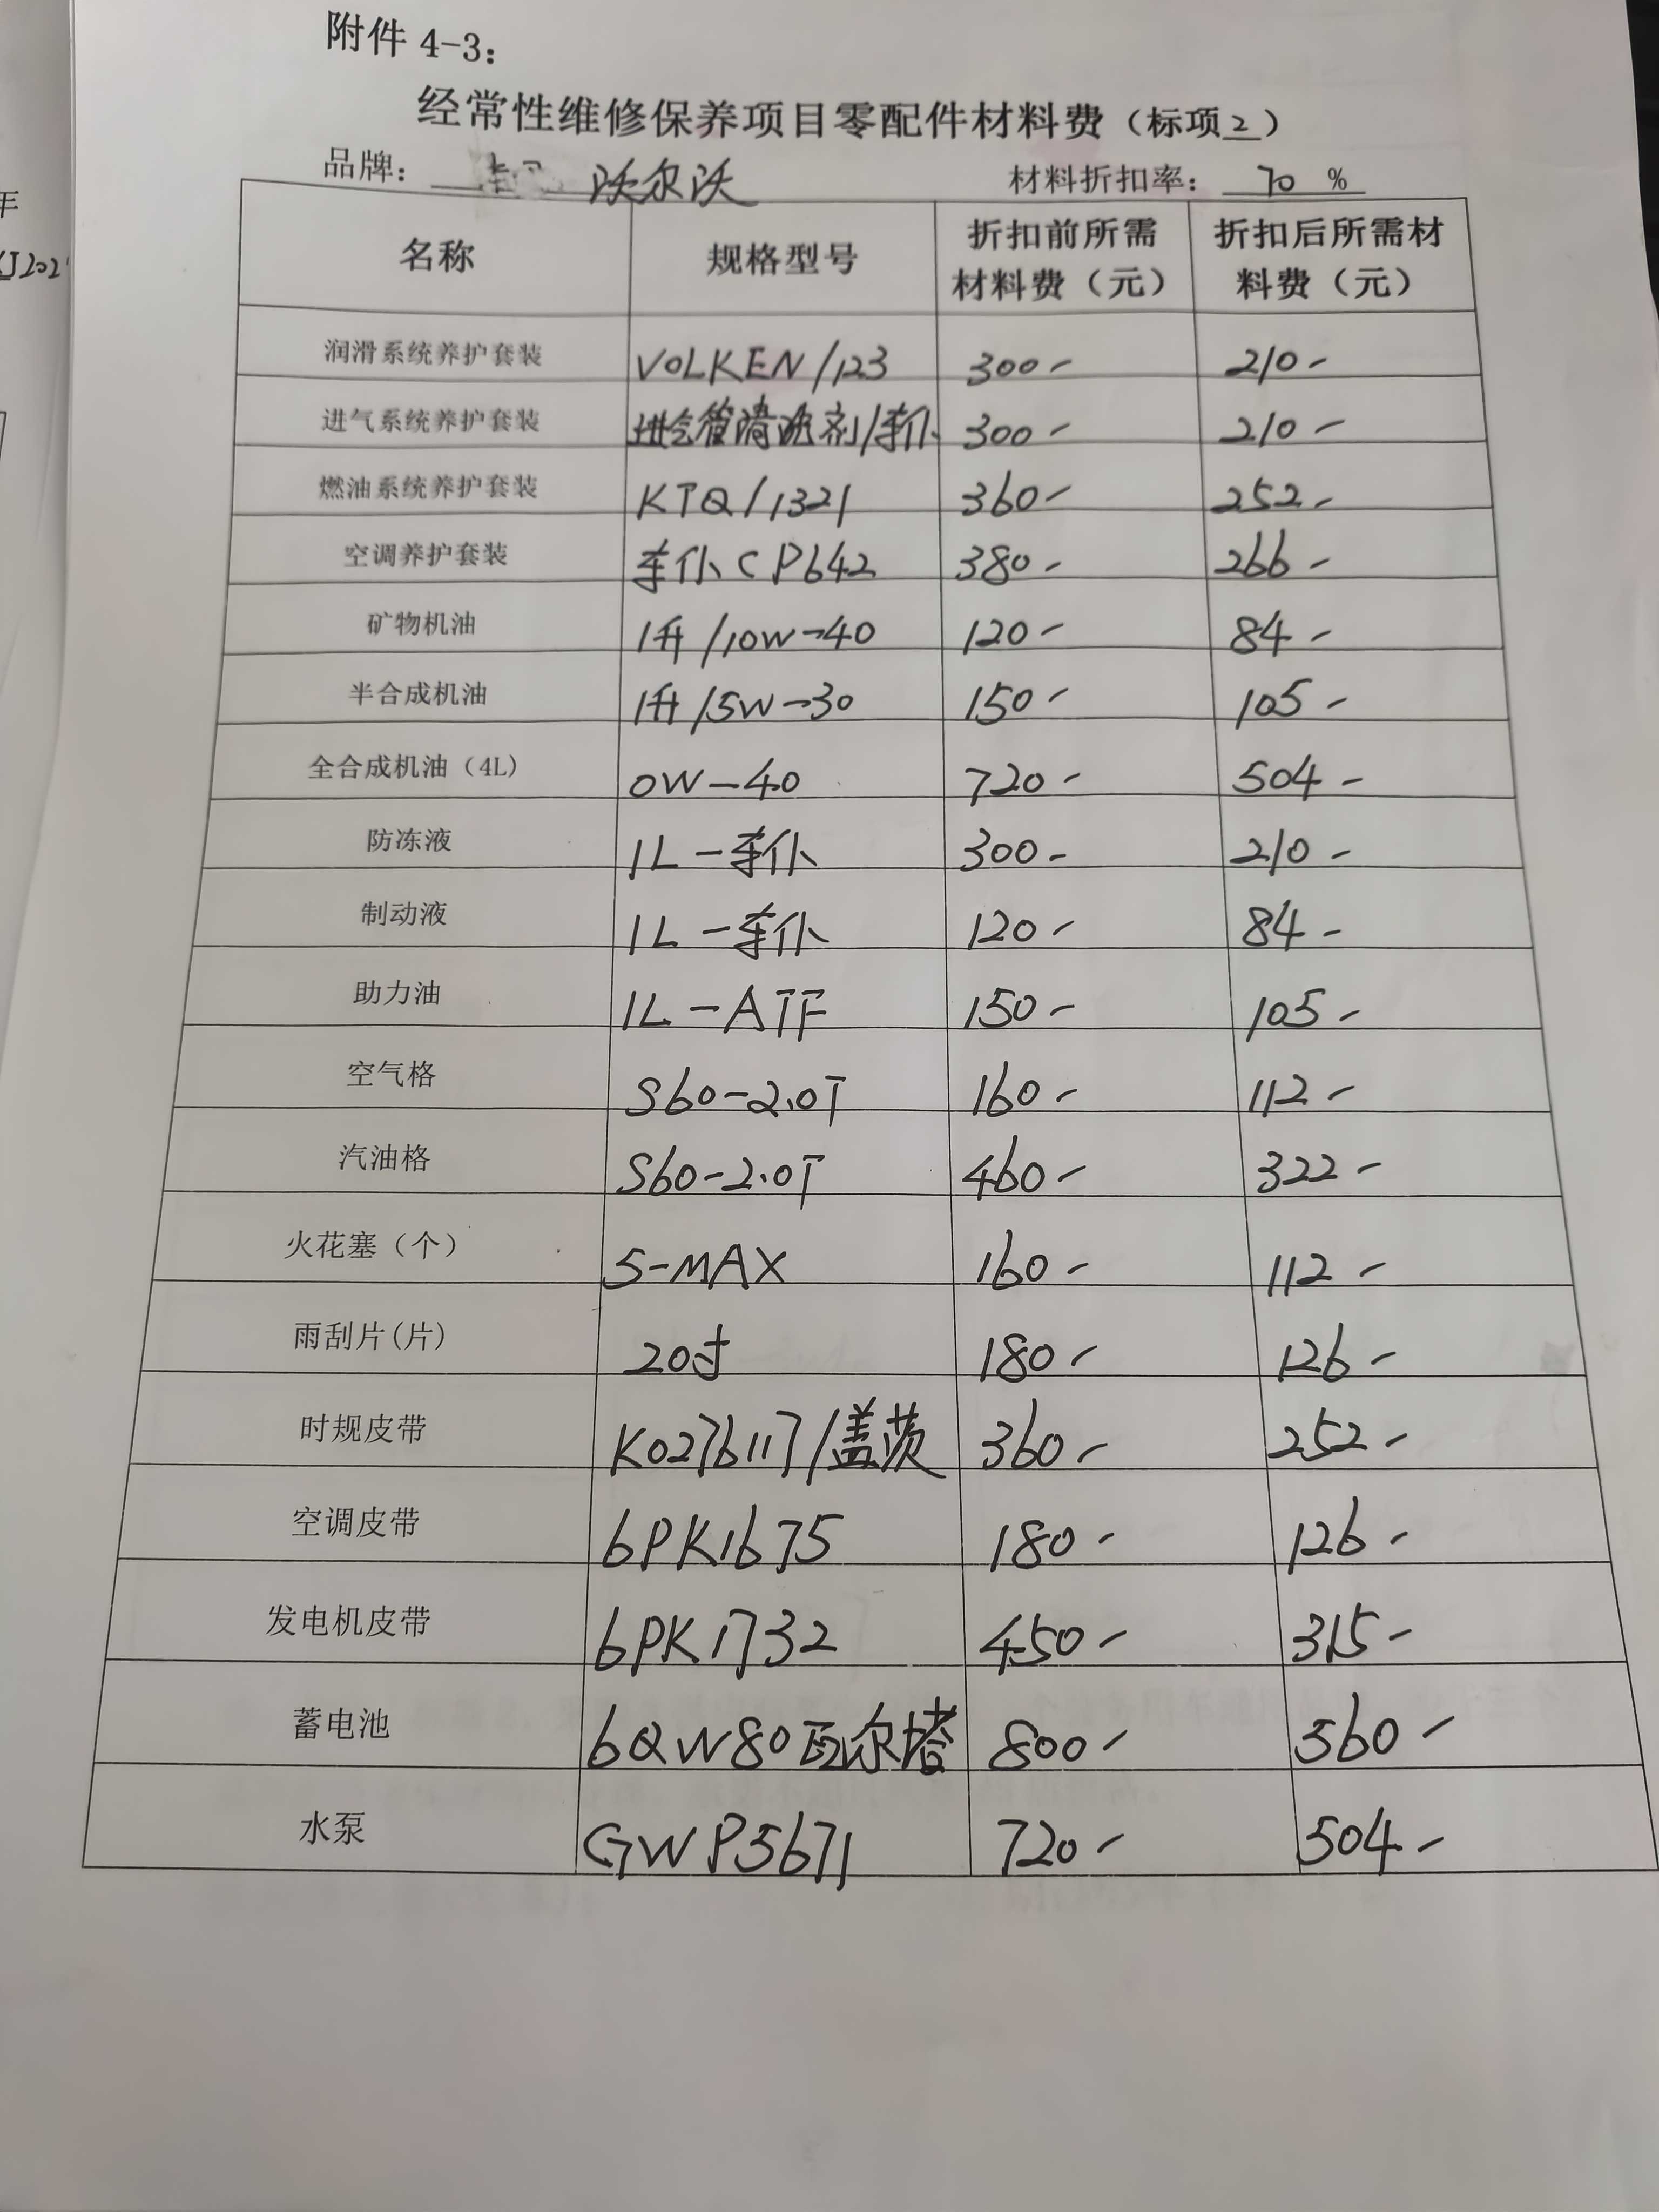 附件 4-3：
经常性维修保养项目零配件材料费（标项2）
品牌： 沃尔沃 材料折扣率： 70 %
名称 规格型号 折扣前所需材料费（元） 折扣后所需材料费（元）
润滑系统养护套装 VOLKEN/123 300- 210-
进气系统养护套装 进气管清洗剂/车仆 300- 210-
燃油系统养护套装 KTQ/1321 360- 252-
空调养护套装 车仆CP642 380- 266-
矿物机油 1升/10W-40 120- 84-
半合成机油 1升/5W-30 150- 105-
全合成机油（4L） 0W-40 720- 504-
防冻液 1L-车仆 300- 210-
制动液 1L-车仆 120- 84-
助力油 1L-ATF 150- 105-
空气格 S60-2.0T 160- 112-
汽油格 S60-2.0T 460- 322-
火花塞（个） S-MAX 160- 112-
雨刮片(片) 20寸 180- 126-
时规皮带 K0276117/盖茨 360- 252-
空调皮带 6PK1675 180- 126-
发电机皮带 6PK1732 450- 315-
蓄电池 6QW80瓦尔塔 800- 560-
水泵 GWP5671 720- 504-
年
J202